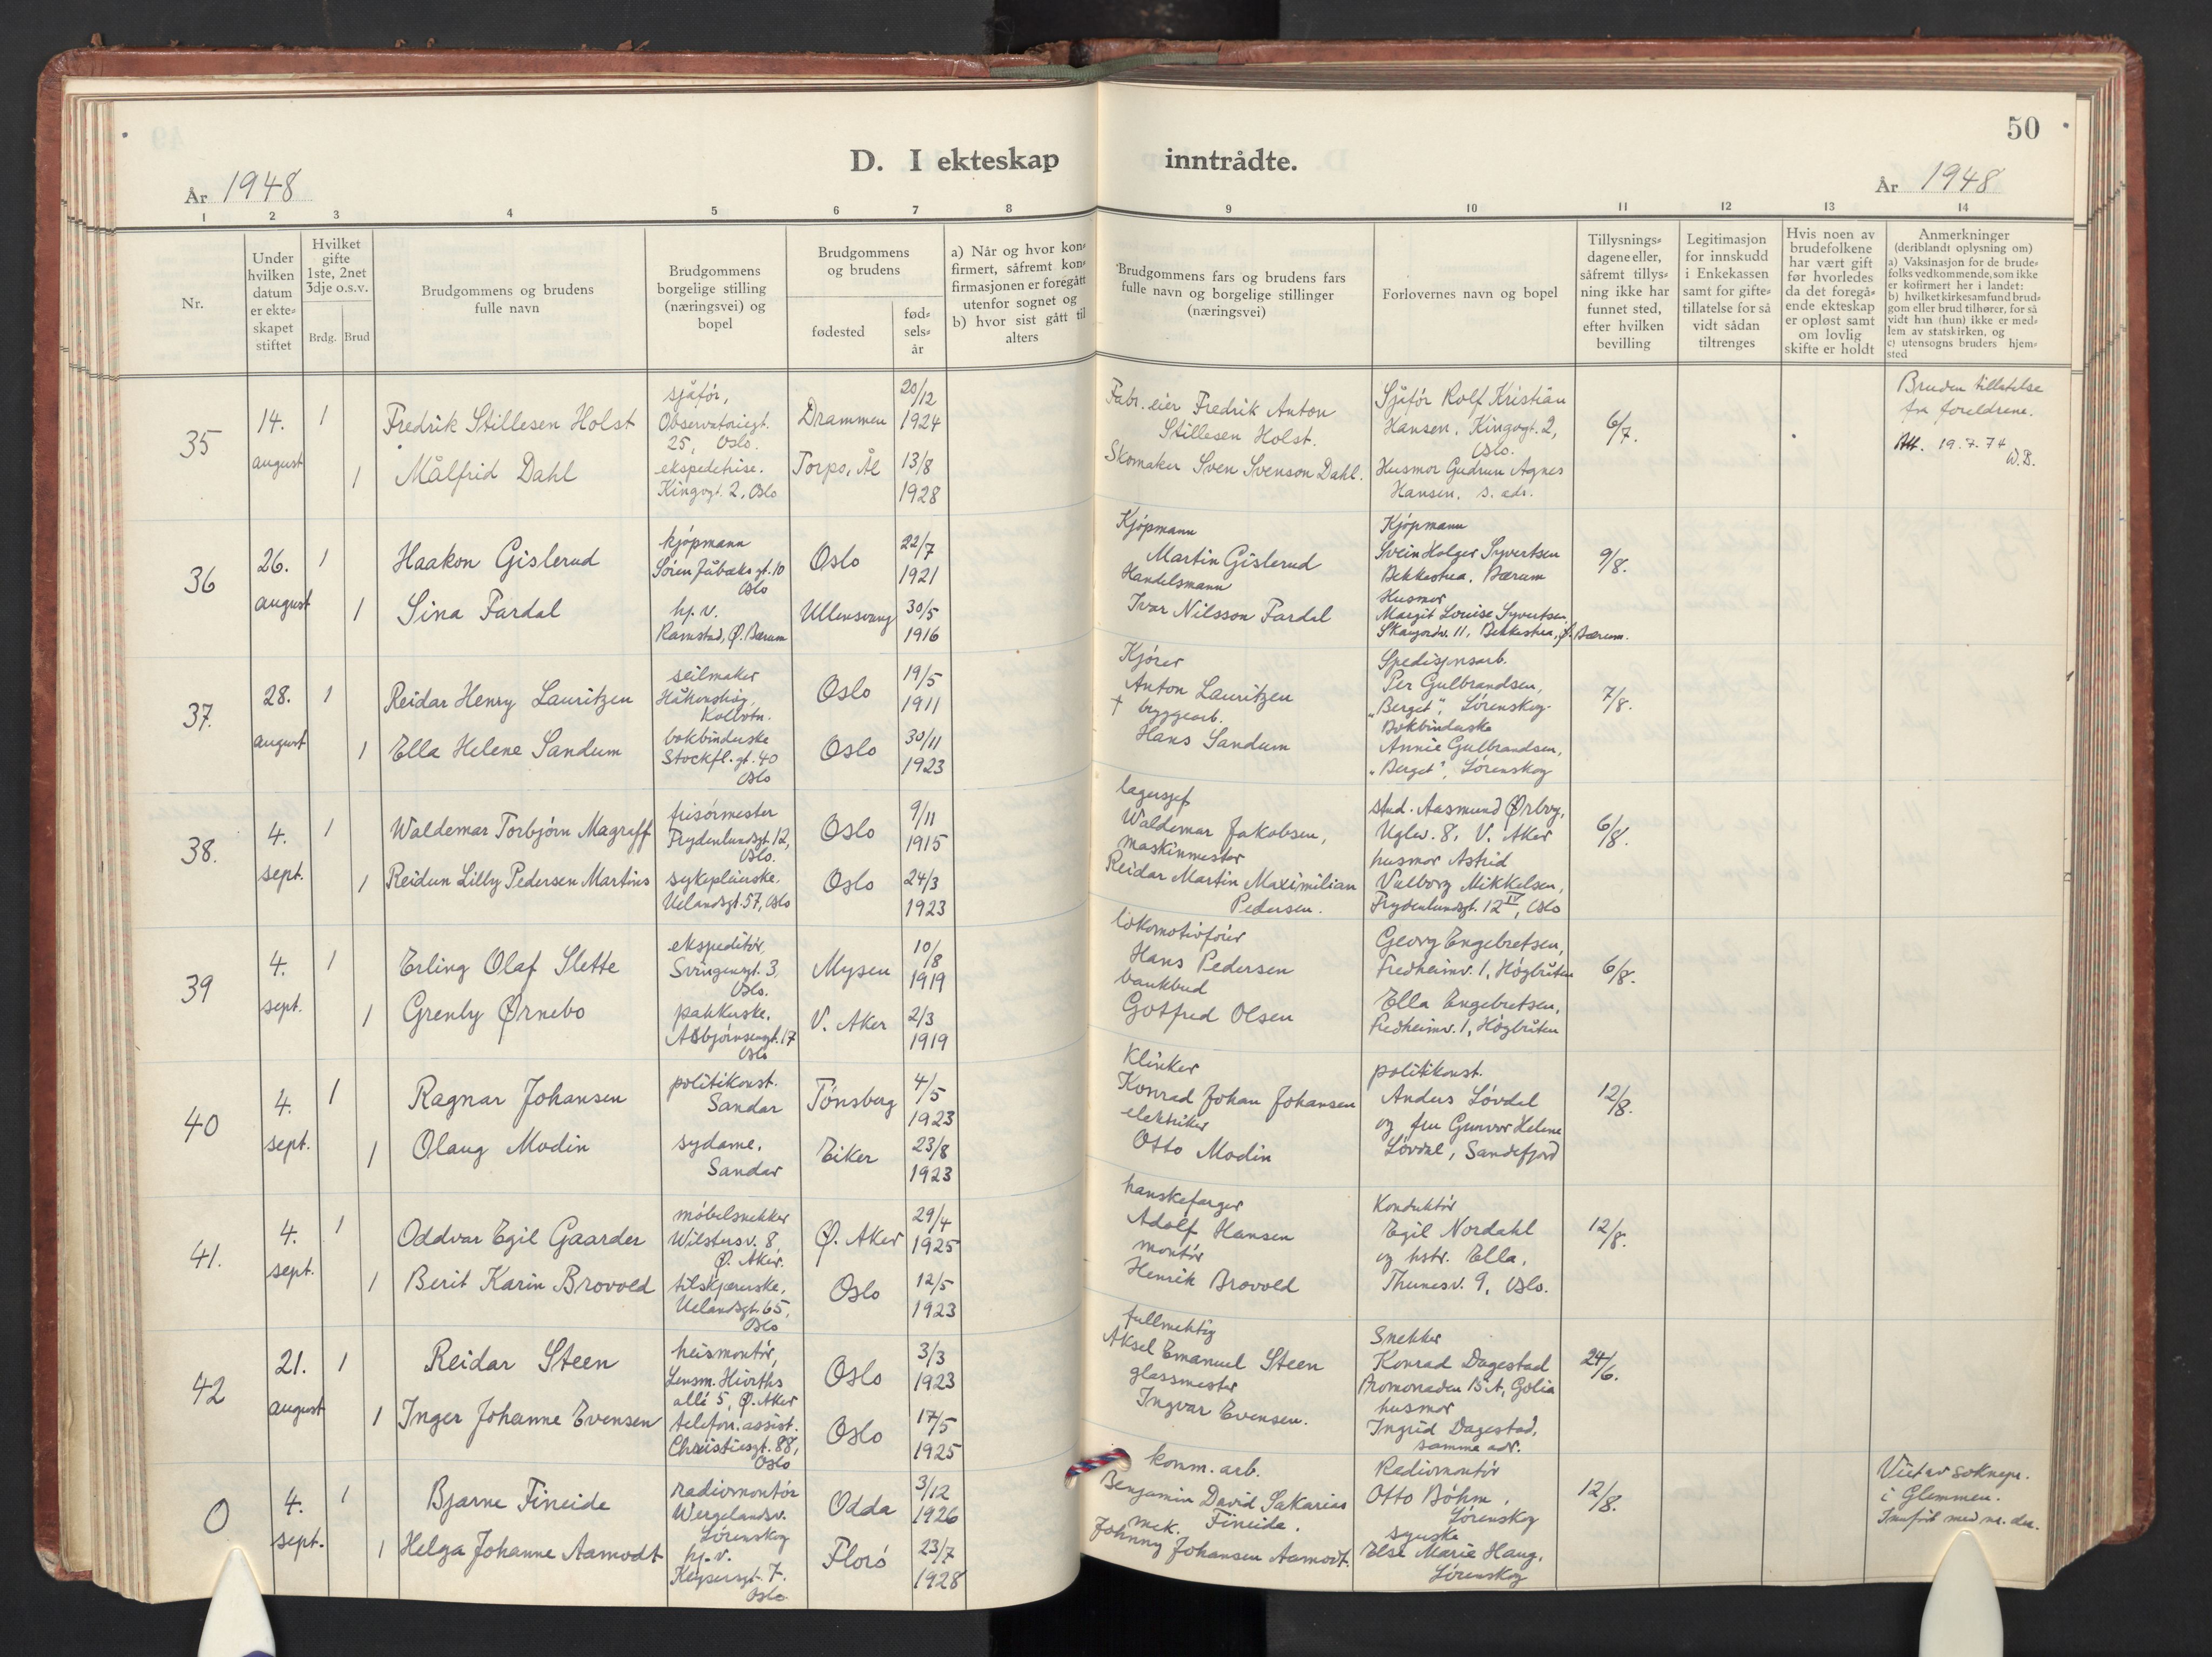 50
D. I ekteskap inntrådte.
År 1948
År 1948
1 2 3 4 5 6 7 8 9 10 11 12 13 14
Nr.
Under hvilken datum er ekteskapet stiftet
Hvilket gifte 1ste, 2net 3dje o.s.v.
Brdg. Brud
Brudgommens og brudens fulle navn
Brudgommens borgelige stilling (næringsvei) og bopel
Brudgommens og brudens
fødested
fødselsår
a) Når og hvor konfirmert, såfremt konfirmasjonen er foregått utenfor sognet og
b) hvor sist gått til alters
Brudgommens fars og brudens fars fulle navn og borgelige stillinger (næringsvei)
Forlovernes navn og bopel
Tillysningsdagene eller, såfremt tillysning ikke har funnet sted, efter hvilken bevilling
Legitimasjon for innskudd i Enkekassen samt for giftetillatelse for så vidt sådan tiltrenges
Hvis noen av brudefolkene har vært gift før hvorledes da det foregående ekteskap er opløst samt om lovlig skifte er holdt
Anmerkninger
(deriblandt oplysning om)
a) Vaksinasjon for de brudefolks vedkommende, som ikke er kofirmert her i landet:
b) hvilket kirkesamfund brudgom eller brud tilhører, for så vidt han (hun) ikke er medlem av statskirken, og
c) utensogns bruders hjemsted
35
14.
august
1
Fredrik Stillesen Holst
sjåfór,
Observatoriegt.
25, Oslo.
Drammen
20/12
1924
1
Målfrid Dahl
ekspeditrise.
Kingosgt. 2, Oslo
Torpo, Ål
13/8
1928
Fabr. eier Fredrik Anton
Stillesen Holst.
Skomaker Sven Svenson Dahl.
Sjåfór Rolf Kristian
Hansen, Kingogt. 2,
Oslo.
Husmor Gudrun Agnes
Hansen, s. adr.
6/7.
Bruden tillatelse
fra foreldrene.
Att. 19.7.74
W.B.
36
26.
august
1
Haakon Gislerud
kjópmann
Sóren Jåbæks gt. 10
Oslo
Oslo
22/7
1921
1
Sina Fardal
hj. v.
Ramstad, Ø. Bærum
Ullensvang
30/5
1916
Kjópmann
Martin Gislerud
Handelsmann
Ivar Nilsson Fardal
Kjópmann
Svein Holger Syvertsen
Bekkestua, Bærum
Husmor
Margit Louise Syvertsen
Skaugordv. 11, Bekkestua, Ø. Bærum.
9/8.
37.
28.
august
1
Reidar Henry Lauritzen
seilmaker
Håkonshåg,
Kolbotn.
Oslo
19/5
1911
1
Ella Helene Sandum
bokbinderske
Stockfl. gt. 40
Oslo
Oslo
30/11
1923
Kjórer
Anton Lauritzen
† bryggearb.
Hans Sandum
Spedisjonsarb.
Per Gulbrandsen,
"Berget", Lórenskog.
Bokbinderske
Annie Gulbrandsen,
"Berget", Lórenskog
7/8.
38.
4.
sept.
1
Waldemar Torbjórn Magraff
frisórmester
Frydenlundsgt. 12,
Oslo.
Oslo
9/11
1915
1
Reidun Lilly Pedersen Martins
sykepleierske.
Uelandsgt. 57, Oslo
Oslo
24/3
1923
lagersjef
Waldemar Jakobsen,
maskinmester
Reidar Martin Maximilian
Pedersen.
stud. Aasmund Ørbog,
Uglev. 8, V. Aker
husmor Astrid
Valborg Mikkelsen,
Frydenlundsgt. 12 IV, Oslo
6/8.
39
4.
sept.
1
Erling Olaf Slette
ekspeditór,
Svingensgt. 3,
Oslo.
Mysen
10/8
1919
1
Grenly Ørnebo
pakkerske,
Asbjórnsensgt. 17
Oslo
V. Aker
2/3
1919
lokomotivfórer
Hans Pedersen
bankbud
Gotfred Olsen
Georg Engebretsen,
Fredheimv. 1, Hógbråten
Ella Engebretsen,
Fredheimv. 1, Hógbråten
6/8.
40
4.
sept.
1
Ragnar Johansen
politikonst.
Sandar
Tónsberg
4/5
1923
1
Olaug Modin
sydame,
Sandar
Eiker
23/8
1923
Klinker
Konrad Johan Johansen
elektriker
Otto Modin
politikonst.
Anders Lóvdal
og fru Gunvor Helene
Lóvdal, Sandefjord
12/8.
41.
4.
sept.
1
Oddvar Egil Gaarder
móbelsnekker
Wilstersv. 8,
Ø. Aker.
Ø. Aker
29/4
1925
1
Berit Karin Brovold
tilskjærerske,
Uelandsgt. 65,
Oslo
Oslo
12/5
1923
hanskefarger
Adolf Hansen
montór
Henrik Brovold
Konduktór
Egil Nordahl
og hstr. Ella,
Thunesv. 9, Oslo.
12/8.
42
21.
august
1
Reidar Steen
heismontór,
Lensm. Hiorths
allé 5, Ø. Aker
Oslo
3/3
1923
1
Inger Johanne Evensen
telefon. assist.
Christiesgt. 88,
Oslo
Oslo
17/5
1925
fullmektig
Aksel Emanuel Steen
glassmester
Ingvar Evensen.
Snekker
Konrad Dagestad
Promenaden 15 A, Golia
husmor
Ingrid Dagestad,
samme adr.
24/6.
0
4.
sept.
1
Bjarne Fineide
radiomontór
Wergelandsv.
Lórenskog
Odda
3/12
1926
1
Helga Johanne Aamodt
hj. v.
Keysersgt. 7.
Oslo
Floró
23/7
1928
komm. arb.
Benjamin David Sakarias
Fineide.
mek.
Johnny Johansen Aamodt.
Radiomontór
Otto Bóhm,
Lórenskog
syerske
Else Marie Haug,
Lórenskog
12/8.
Viet av soknepr.
i Glemmen.
Innfórt med nr. der.